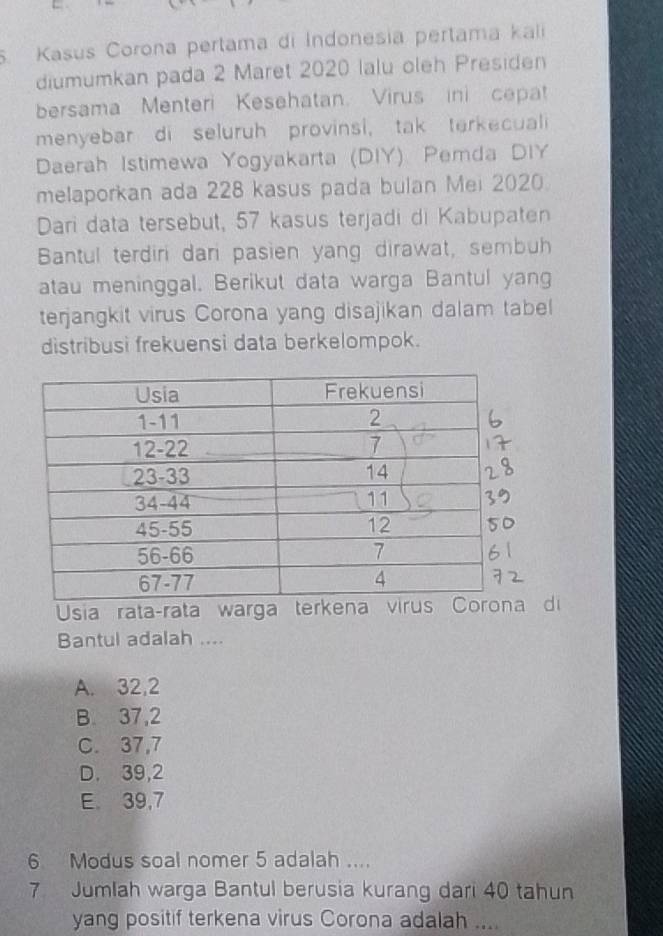 5. Kasus Corona pertama di Indonesia pertama kali
diumumkan pada 2 Maret 2020 lalu oleh Presiden
bersama Menteri Kesehatan. Virus ini cepat
menyebar di seluruh provinsi, tak terkecuali
Daerah Istimewa Yogyakarta (DIY). Pemda DIY
melaporkan ada 228 kasus pada bulan Mei 2020.
Dari data tersebut, 57 kasus terjadi di Kabupaten
Bantul terdiri dari pasien yang dirawat, sembuh
atau meninggal. Berikut data warga Bantul yang
terjangkit virus Corona yang disajikan dalam tabel
distribusi frekuensi data berkelompok.
Usia Frekuensi
1-11 2 6
12-22 7 17
23-33 14 28
34-44 11 39
45-55 12 50
56-66 7 61
67-77 4 72
Usia rata-rata warga terkena virus Corona di
Bantul adalah ....
A. 32,2
B. 37,2
C. 37,7
D. 39,2
E. 39,7
6 Modus soal nomer 5 adalah ....
7 Jumlah warga Bantul berusia kurang dari 40 tahun
yang positif terkena virus Corona adalah ....